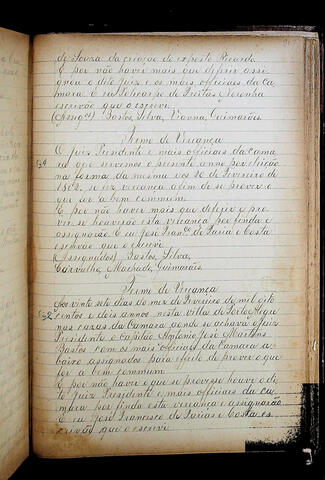 de Souza da criação do exposto Ricardo.
E por não haver mais que deferir assi-
gnou o dito Juiz e os mais officiaes da Ca-
mara. E eu Policarpo de Freitas Noronha
escrivão que o escrevi
(Assigos) Bastos, Silva, Vianna, Guimarães.
Termo de Vereança
O Juiz Presidente e mais officiaes da Cama
ra que servimos o presente anno por eleição
na forma da mesma aos 20 de Fevereiro de
1802, se fez vereança afim de se prover o
que for a bem commum.
E por não haver mais que deferir e pro-
ver se houverão esta vereança por finda e
assignarão. E eu José Franco de Faria e Costa
escrivão que o escrevi
(Assignados) Bastos, Silva,
Carvalho, Machado, Guimarães.
Termo de Vereança
Aos vinte sete dias do mez de Fevereiro de mil oito
centos e dois annos nesta villa de Porto Alegre
nas cazas da Camara aonde se achava o Juiz
Presidente o Capitão Antonio José Martins
Bastos com os mais officiaes da Camara a-
baixo assignados para effeito de prover o que
for a bem commum
E por não haver o que se provesse houve o di-
to Juiz Presidente e mais officiaes da ca-
mara por finda esta vereança e assignarão.
E eu José Francisco de Farias e Costa es-
crivão que o escrevi